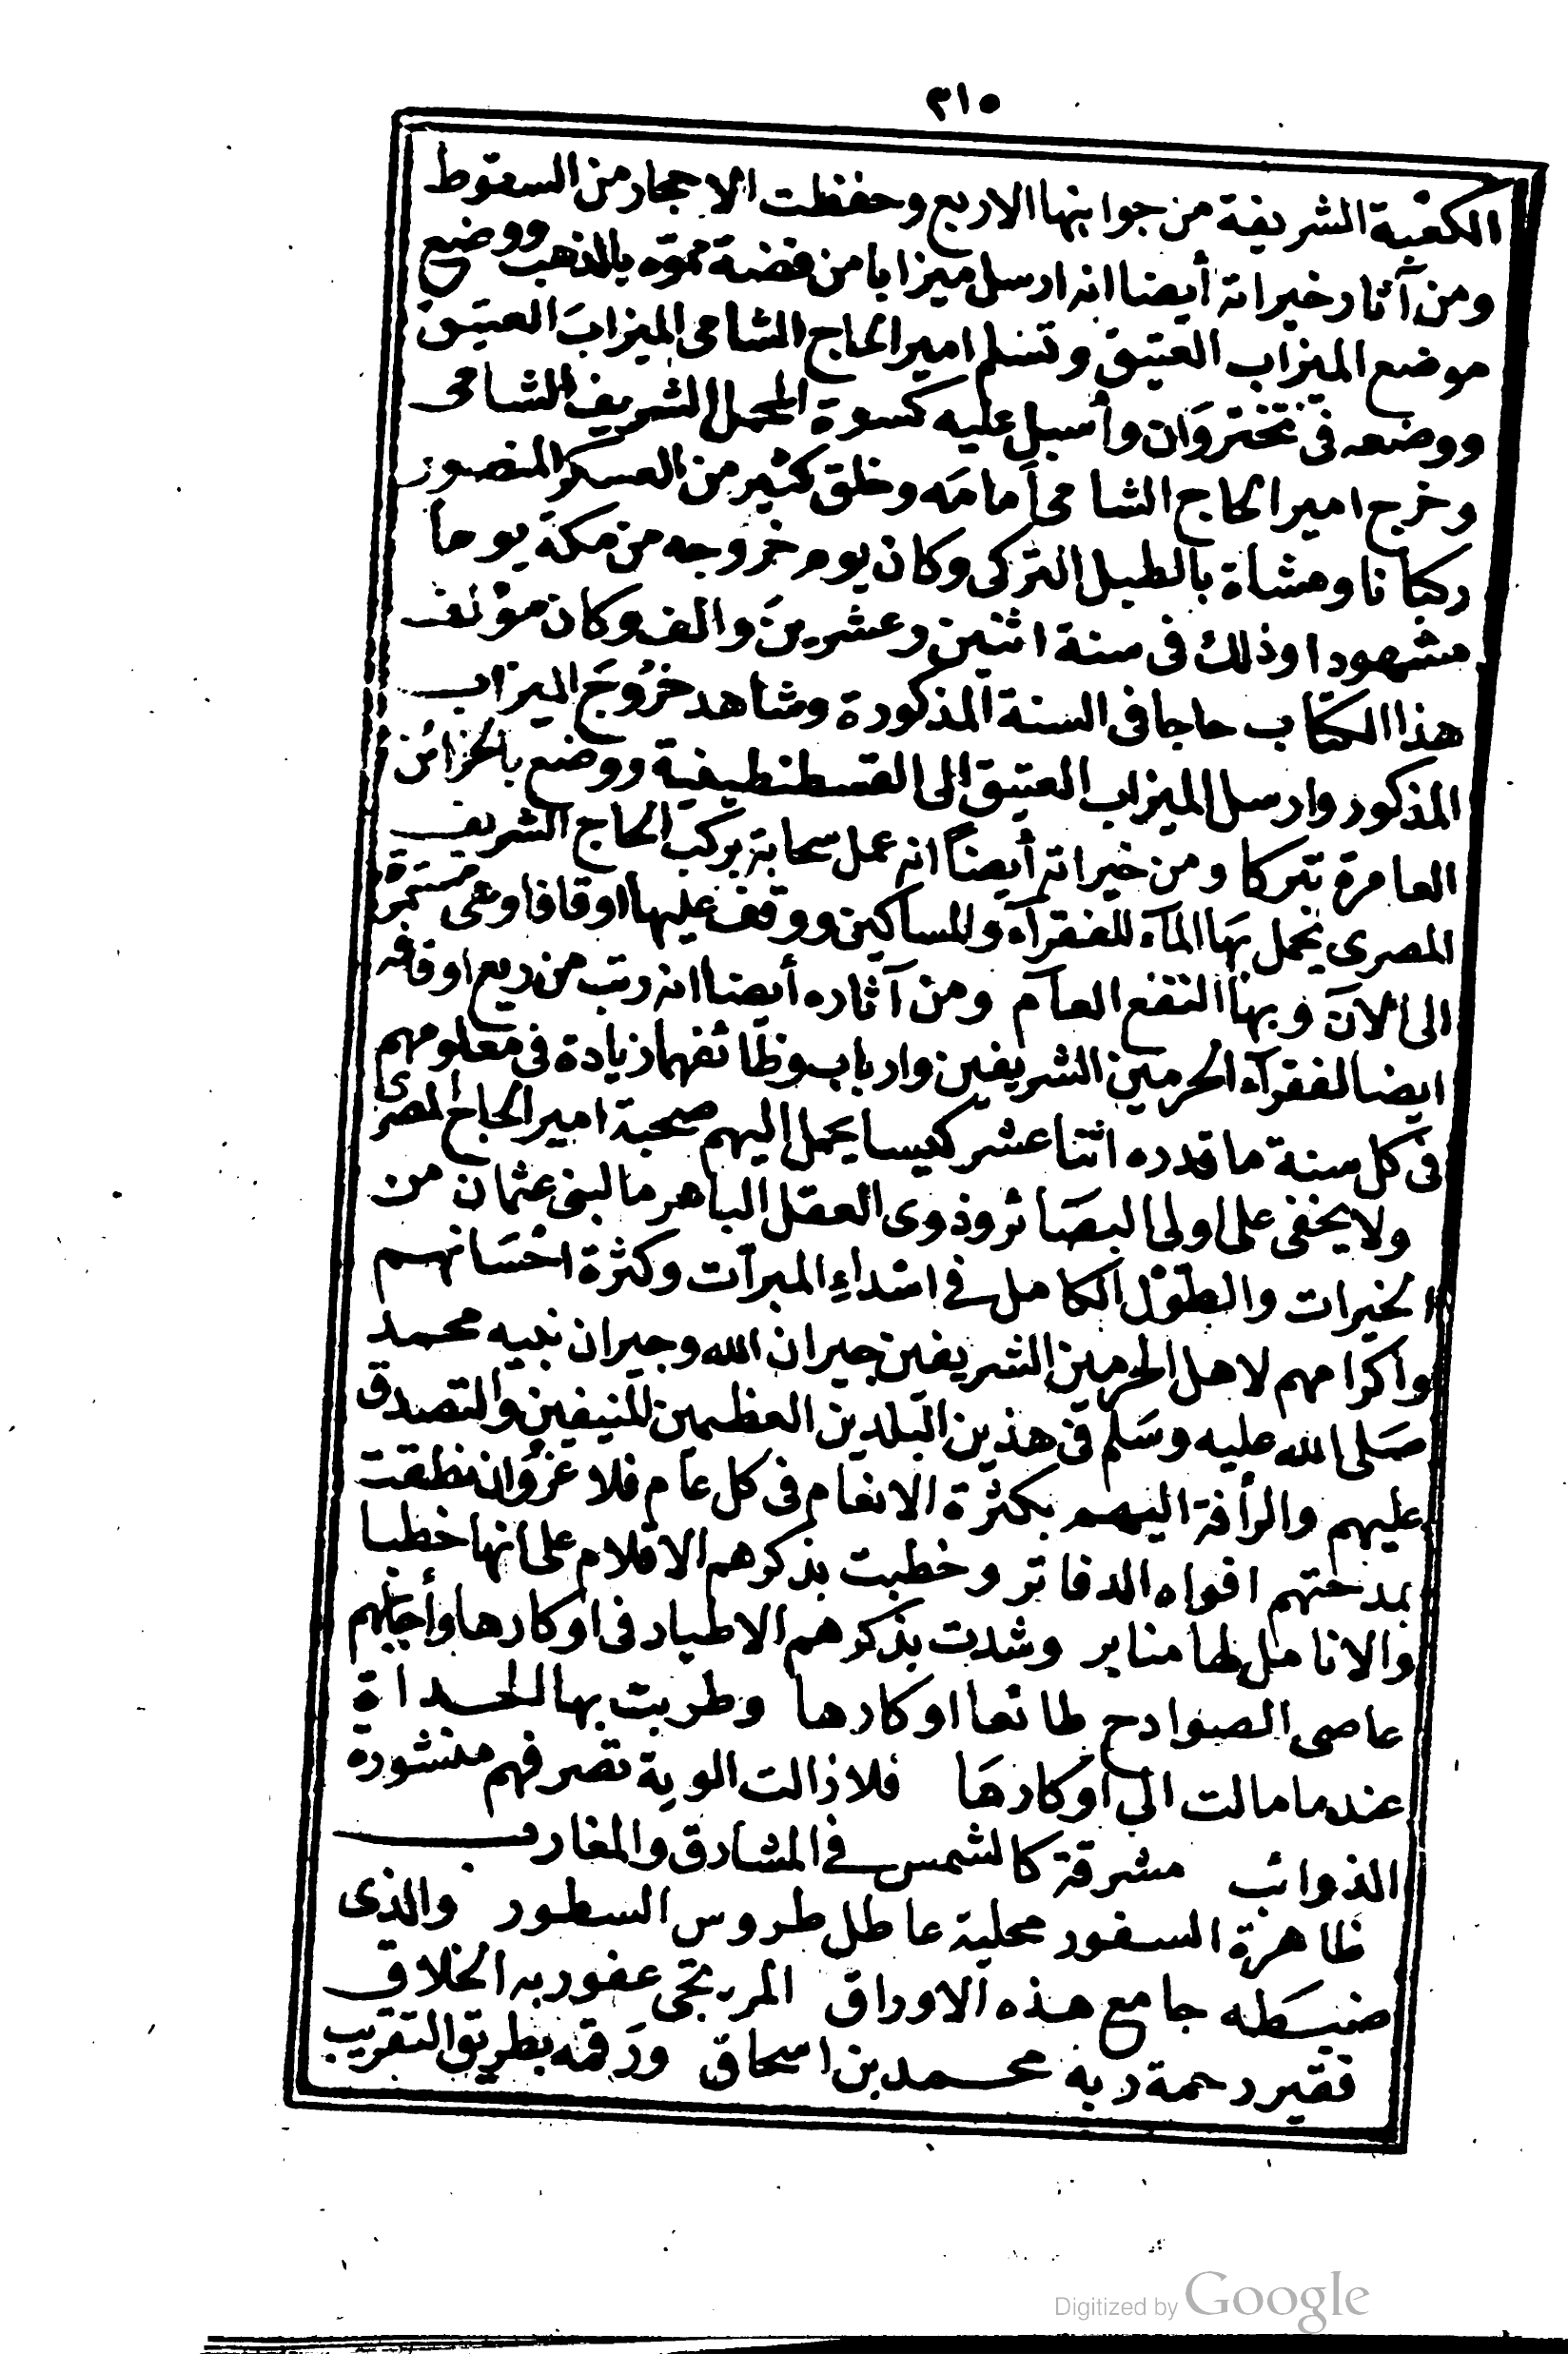 ٢١٥
الكعبة الشريفة من جوانبها الاربع وحفظت الاحجار من السقوط
ومن آثار خيراته أيضا انه ارسل ميزابا من فضة مموّه بالذهب ووضع
موضع الميزاب العتيق وتسلم امير الحاج الشامى الميزابَ العتيق
ووضعه فى تختروَان وأسبل عليه كسوة المحمل الشريف الشامى
وخرج امير الحاج الشامى أمامَه وخلق كثير من العسكر المنصور
ركبانا ومشاة بالطبل التركى وكان يوم خروجه من مكة يوماً
مشهودا وذلك فى سنة اثنين وعشرينَ والف وكان مؤلف
هذا الكتاب حاجا فى السنة المذكورة وشاهد خرُوجَ الميزاب
المذكور وارسل الميزاب العتيق الى القسطنطيفية ووضع بالخزائن
العامرة تبركا ومن خيراته أيضاً انه عمل سحابة بركب الحاج الشريف
المصرى يحمل بهَا المآء للفقرآء وللمساكين ووقف عليها اوقافا وهى مستمرة
الى الآن وبها النفع العآم ومن آثاره أيضا انه رتب من ريع اوقافه
ايضا لفقرآء الحرمين الشريفين وارباب وظائفهما زيادة فى معلومهم
فى كل سنة ما قدره اثنا عشر كيسا يحمل اليهم صحبة امير الحاج المصرى
ولا يخفى على اولى البصَائر وذوى العقل الباهر ما لبنى عثمان من
الخيرات والطوْل الكامل في اسْداءِ المبرآت وكثرة احْسَانهم
واكرامهم لاهل الحرمين الشريفين جيران الله وجيران نبيه محمد
صَلى الله عليه وسَلم فى هذين البَلدين العظيمين المنيفين والتصدق
عليهم والرأفة اليهم بكثرة الانعام فى كل عام فلا غرْوَ ان نطقت
بمدحتهم افواه الدفاتر وخطبت بذكرهم الاقلام على انها خطبا
والانامل لها منابر وشدت بذكرهم الاطيار فى اوكارها وأجابهم
عاصى الصوادح طائعا اوكارها وطربت بها الحداة
عندما مالت الى أوكارهَا فلا زالت الوية تصرفهم منشورة
الذوائب مشرقة كالشمس في المشارق والمغارب
ظاهرة السفور محلية عاطل طروس السطور والذى
ضبسَطه جامع هذه الاوراق المرتجى عفو ربه الخلاق
فقير رحمة ربه محمد بن اسحاق ورَقمه بطريق التقريب
Digitized by Google